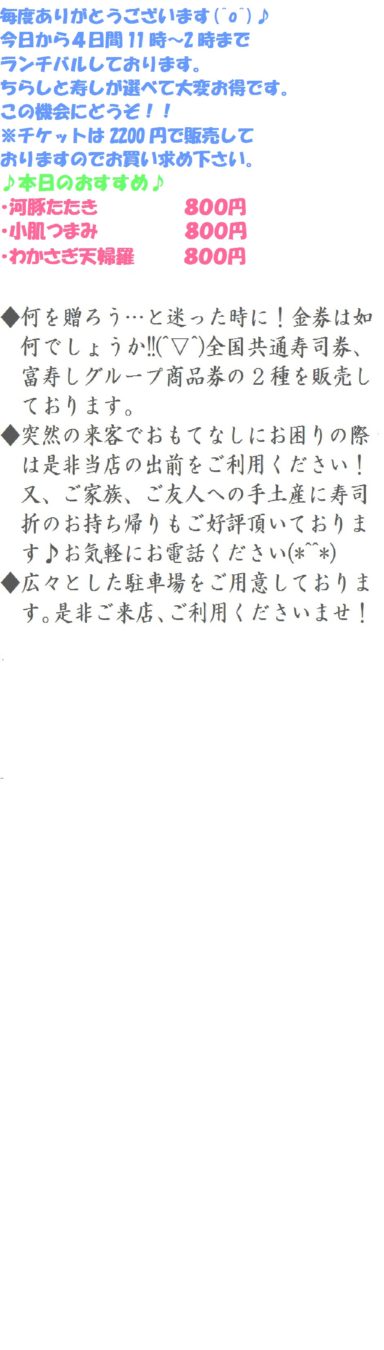 毎度ありがとうございます(^o^)♪
今日から4日間11時～2時まで
ランチバルしております。
ちらしと寿しが選べて大変お得です。
この機会にどうぞ！！
※チケットは2200円で販売して
おりますのでお買い求め下さい。
♪本日のおすすめ♪
・河豚たたき 800円
・小肌つまみ 800円
・わかさぎ天婦羅 800円
◆何を贈ろう…と迷った時に！金券は如
何でしょうか!!(^▽^)全国共通寿司券、
富寿しグループ商品券の２種を販売し
ております。
◆突然の来客でおもてなしにお困りの際
は是非当店の出前をご利用ください！
又、ご家族、ご友人への手土産に寿司
折のお持ち帰りもご好評頂いておりま
す♪お気軽にお電話ください(*^^*)
◆広々とした駐車場をご用意しておりま
す。是非ご来店、ご利用くださいませ！